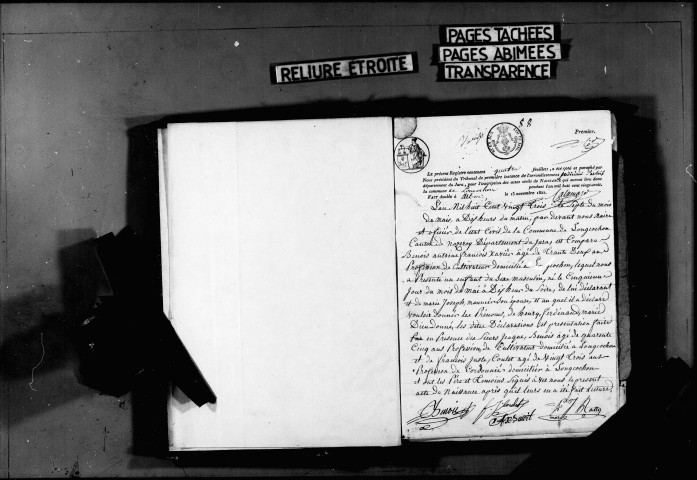 RELIURE ETROITE
PAGES TACHEES
PAGES ABIMEES
TRANSPARENCE
88
Premier.
Le présent Registre contenant quatre feuillets, a été coté et paraphé par
Nous président du Tribunal de première instance de l'arrondissement
département du Jura, pour l'inscription des actes civils de Naissance qui auront lieu dans
la commune de Longcochon pendant l'an mil huit cent vingt-trois.
Fait double à Arbois le 15 novembre 1822.
L'an Mil huit Cent Vingt Trois le Sept du mois
de mai, a Dix heures du matin, par devant nous maire
et officier de l'état Civil de la Commune de Longcochon
Canton de nozeroy Département du Jura est Comparu
Benois françois Xavier âgé de Trante Deux an
Profession de Cultivateur domicilié a Longcochon, lequel nous
a Présenté un enfant du Sexe masculin, né le Cinquieme
Jour du mois de mai a Dix heur du Soire, de lui déclarant
et de marie Joseph, monnier Son épouse, et au quel il a déclaré
vouloir donner les Prénoms, de henry, ferdinand, marie
Dieu donné, les dites Déclarations est présentation faite
en Présence des Sieurs Benois âgé de quarente
Cinq ans Profession de Cultivateur domicilié a Longcochon
et de françois Juste, Coulet agé de Vingt Trois ans
Profession de Cordonnié domicilier à Longcochon
et ont les Pére et Temoins Signés avec nous le présent
acte de Naissance après quil leurs en a été fait Lecture